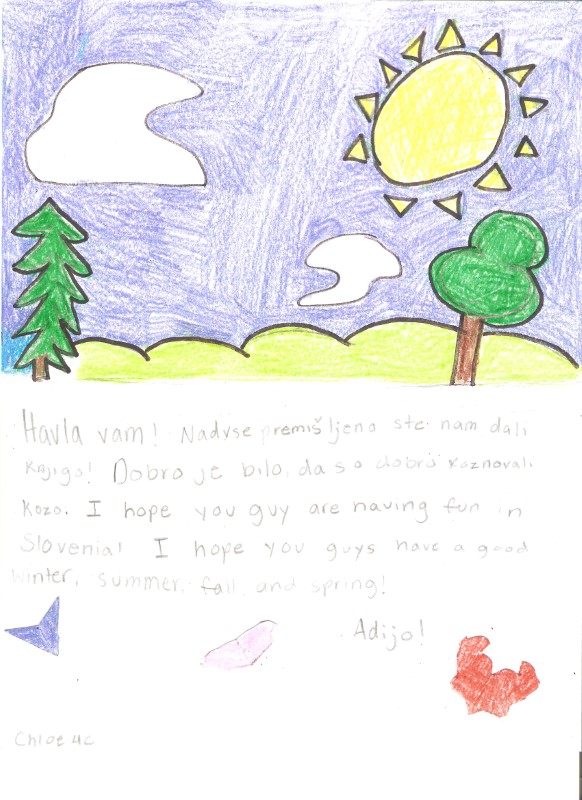 Havla vam! Nadvse premišljeno ste nam dali
knjigo! Dobro je bilo, da so dobro koznovali
kozo. I hope you guy are having fun in
Slovenia! I hope you guys have a good
winter, summer, fall, and spring!
Adijo!
Chloe 4c